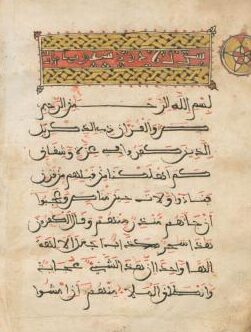 بسم الله الرحمن الرحيم
ص والقران ذي الذكر بل
الذين كفروا في عزة وشقاق
كم اهلكنا من قبلهم من قرن
فنادوا ولات حين مناص وعجبوا
ان جاءهم منذر منهم وقال الكفرون
هذا سحر كذاب اجعل الالهة
الها واحدا ان هذا لشيء عجاب
وانطلق الملا منهم ان امشوا